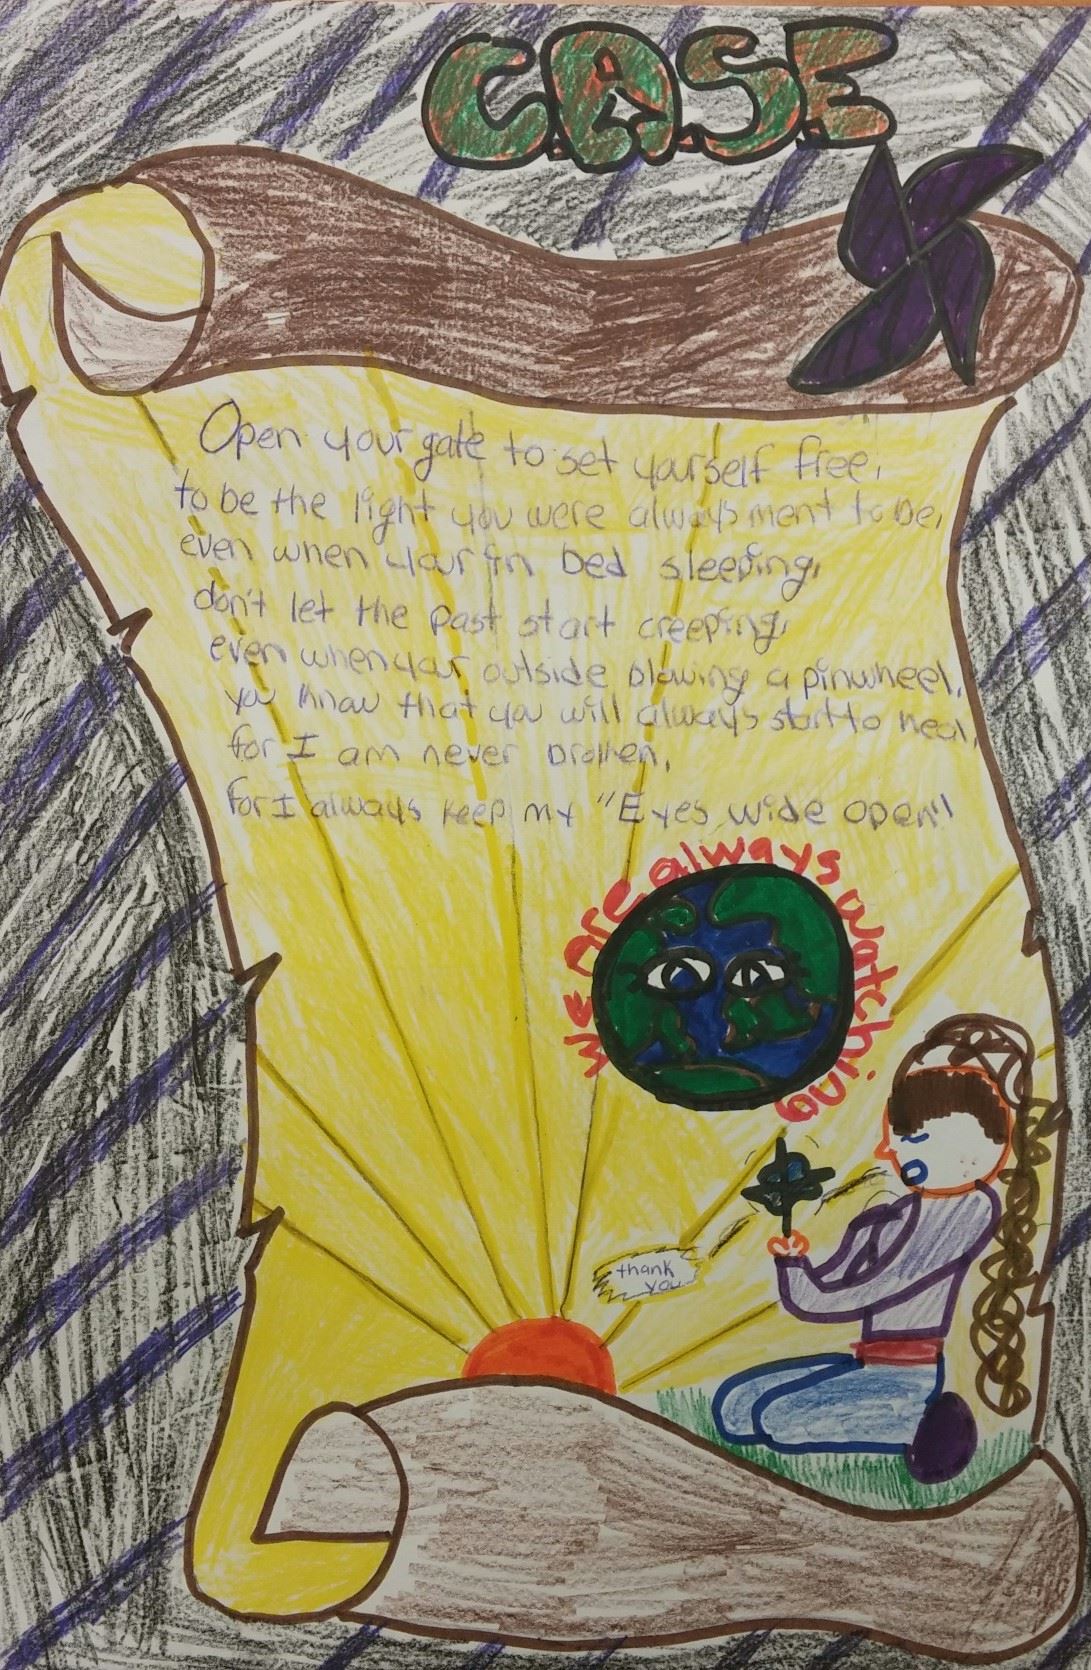 C.A.S.E
Open your gate to set yourself free,
to be the light you were always ment to be,
even when your in bed sleeping,
don't let the past start creeping,
even when your outside blowing a pinwheel,
you know that you will always start to heal,
for I am never broken,
for I always keep my "Eyes wide open"
We are always watching
thank
you